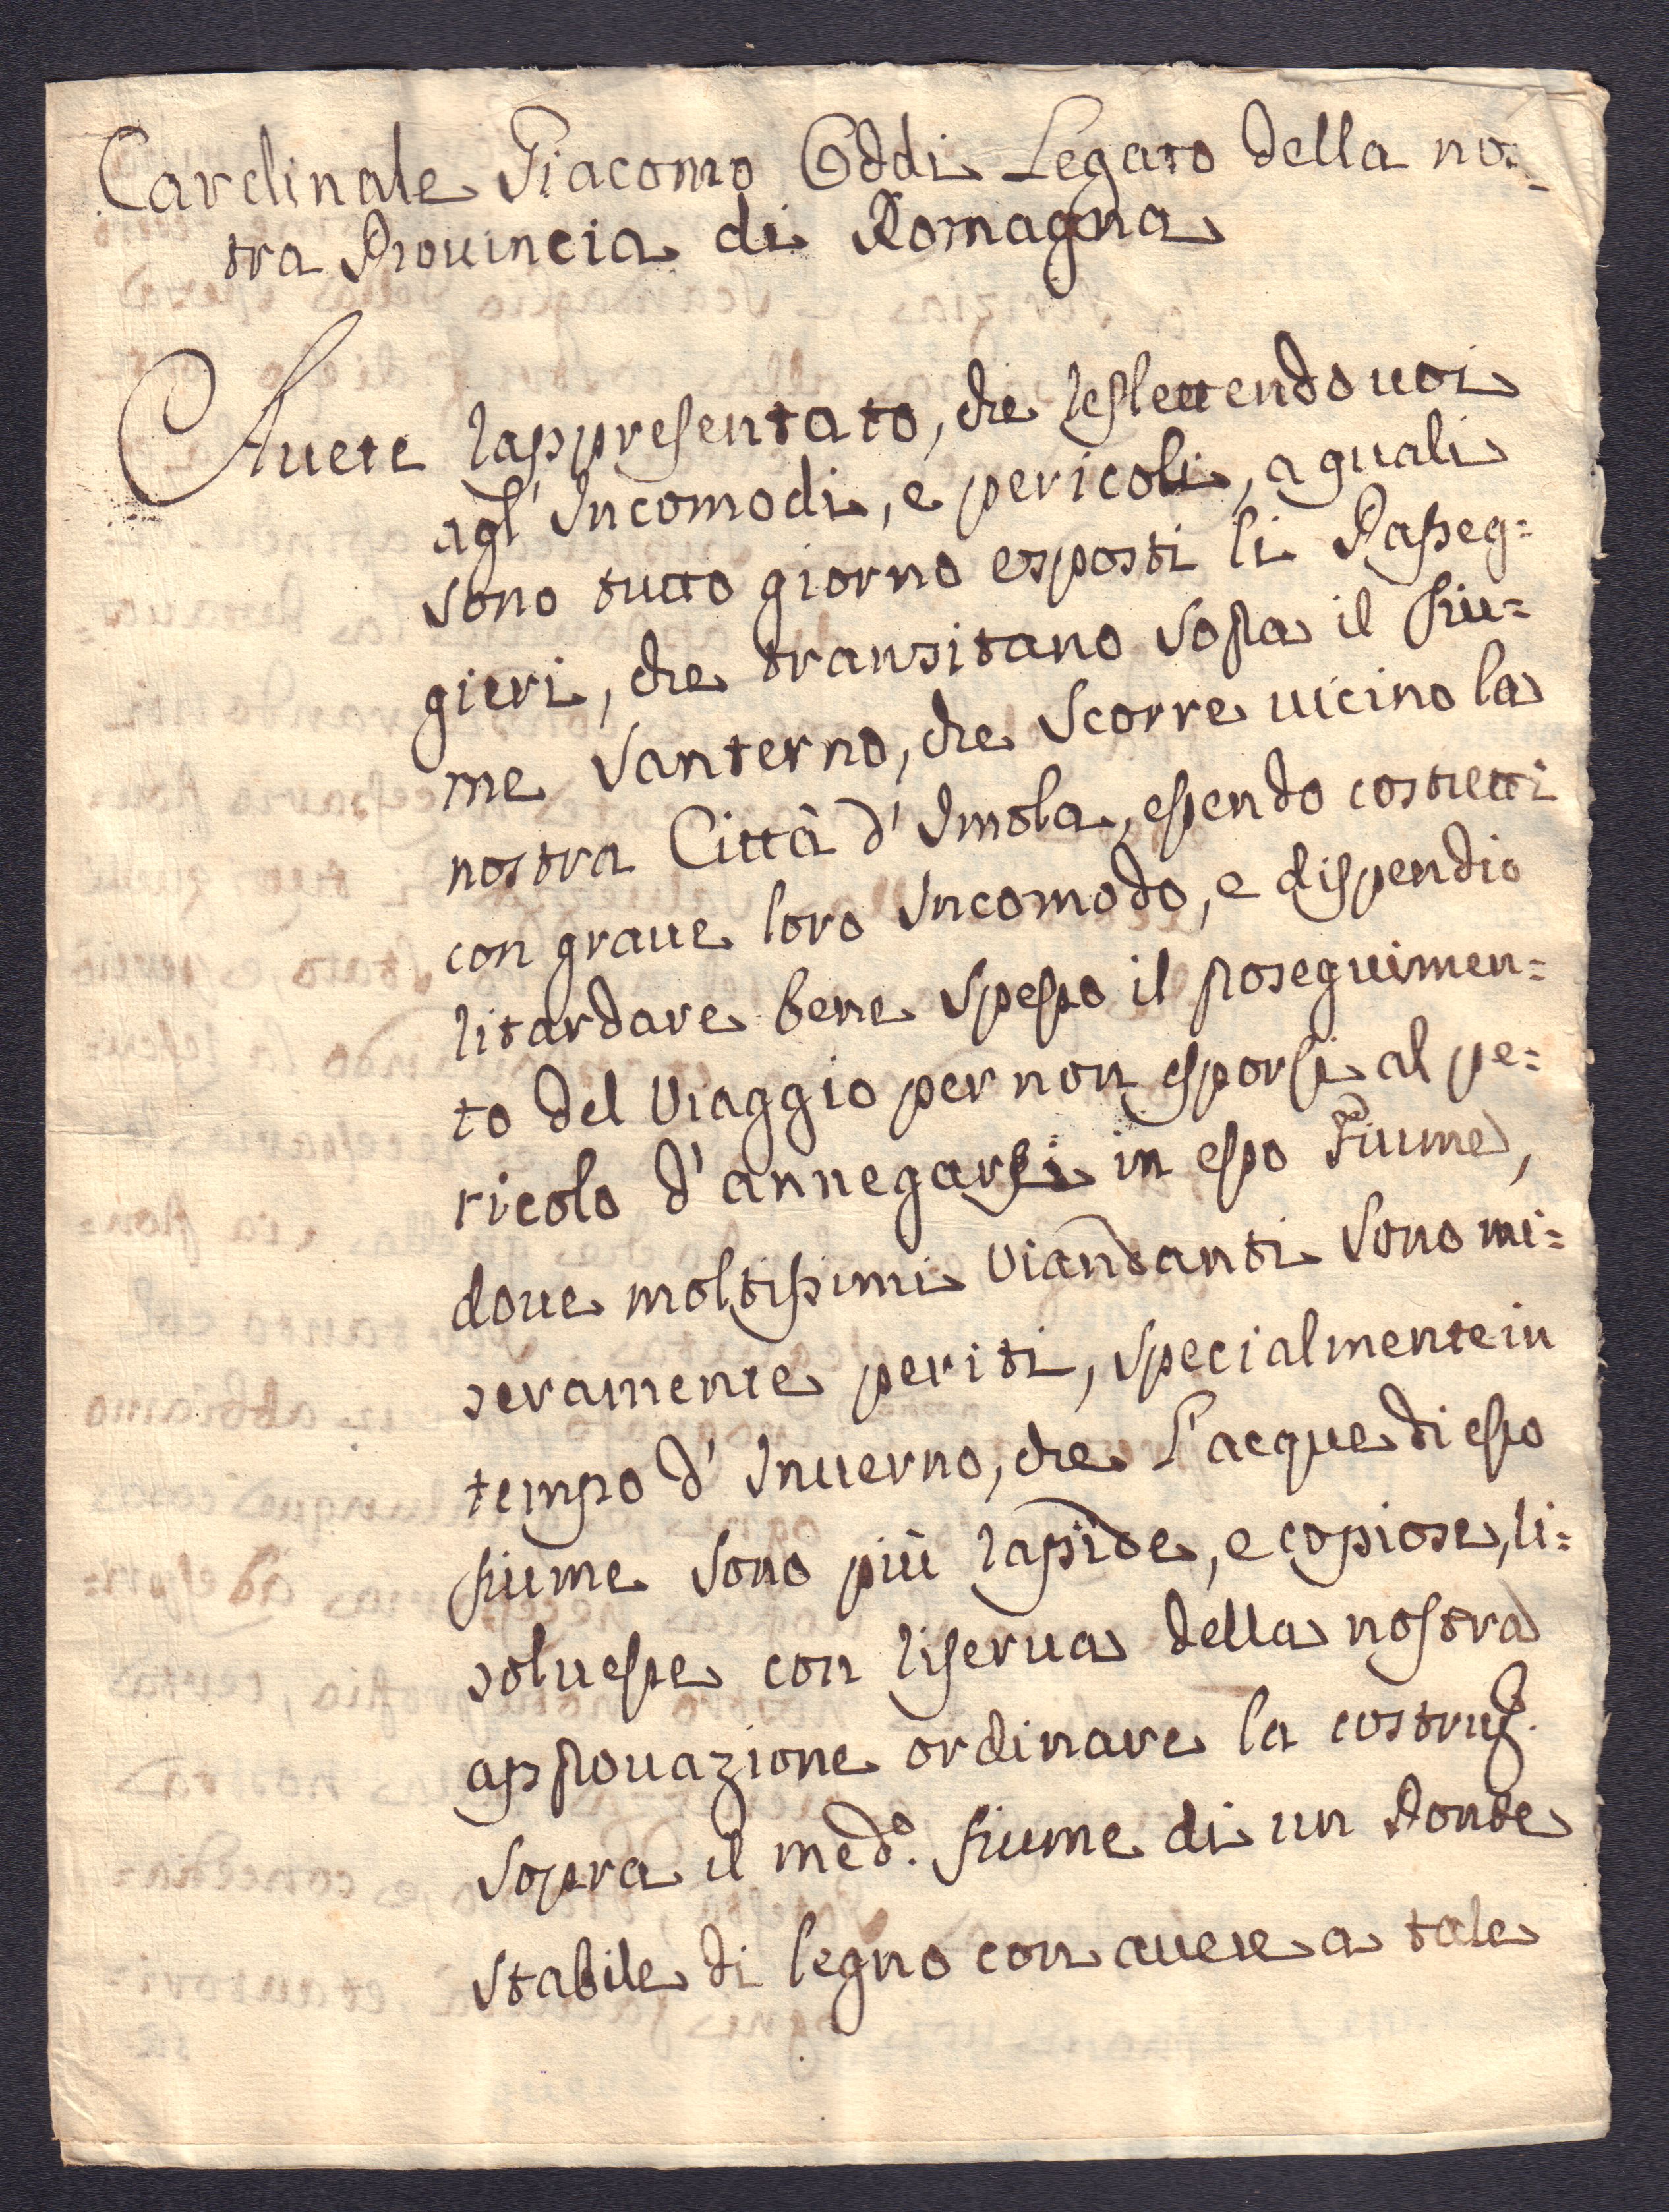 Cardinale Giacomo Oddi Legato della no=
tra Prouincia di Romagna
Auete rappresentato, che reflettendo uoi
agl' Incomodi, e pericoli, a quali
sono tutto giorno esposti li Passeg=
gieri, che transitano sopra il fiu=
me Santerno, che scorre uicino la
nostra Città d' Imola, essendo costretti
con graue loro Incomodo, e dispendio
ritardare bene spesso il proseguimen=
to del Viaggio per non esporsi al pe=
ricolo d' annegarsi in esso Fiume,
doue moltissimi Viandanti sono mi=
seramente periti, specialmente in
tempo d' Inuerno, che l'acque di esso
fiume sono più rapide, e copiose, ri=
solueste con riserua della nostra
approuazione ordinare la costruz.
sopra il med.o fiume di un Ponte
stabile di legno con auere a tale